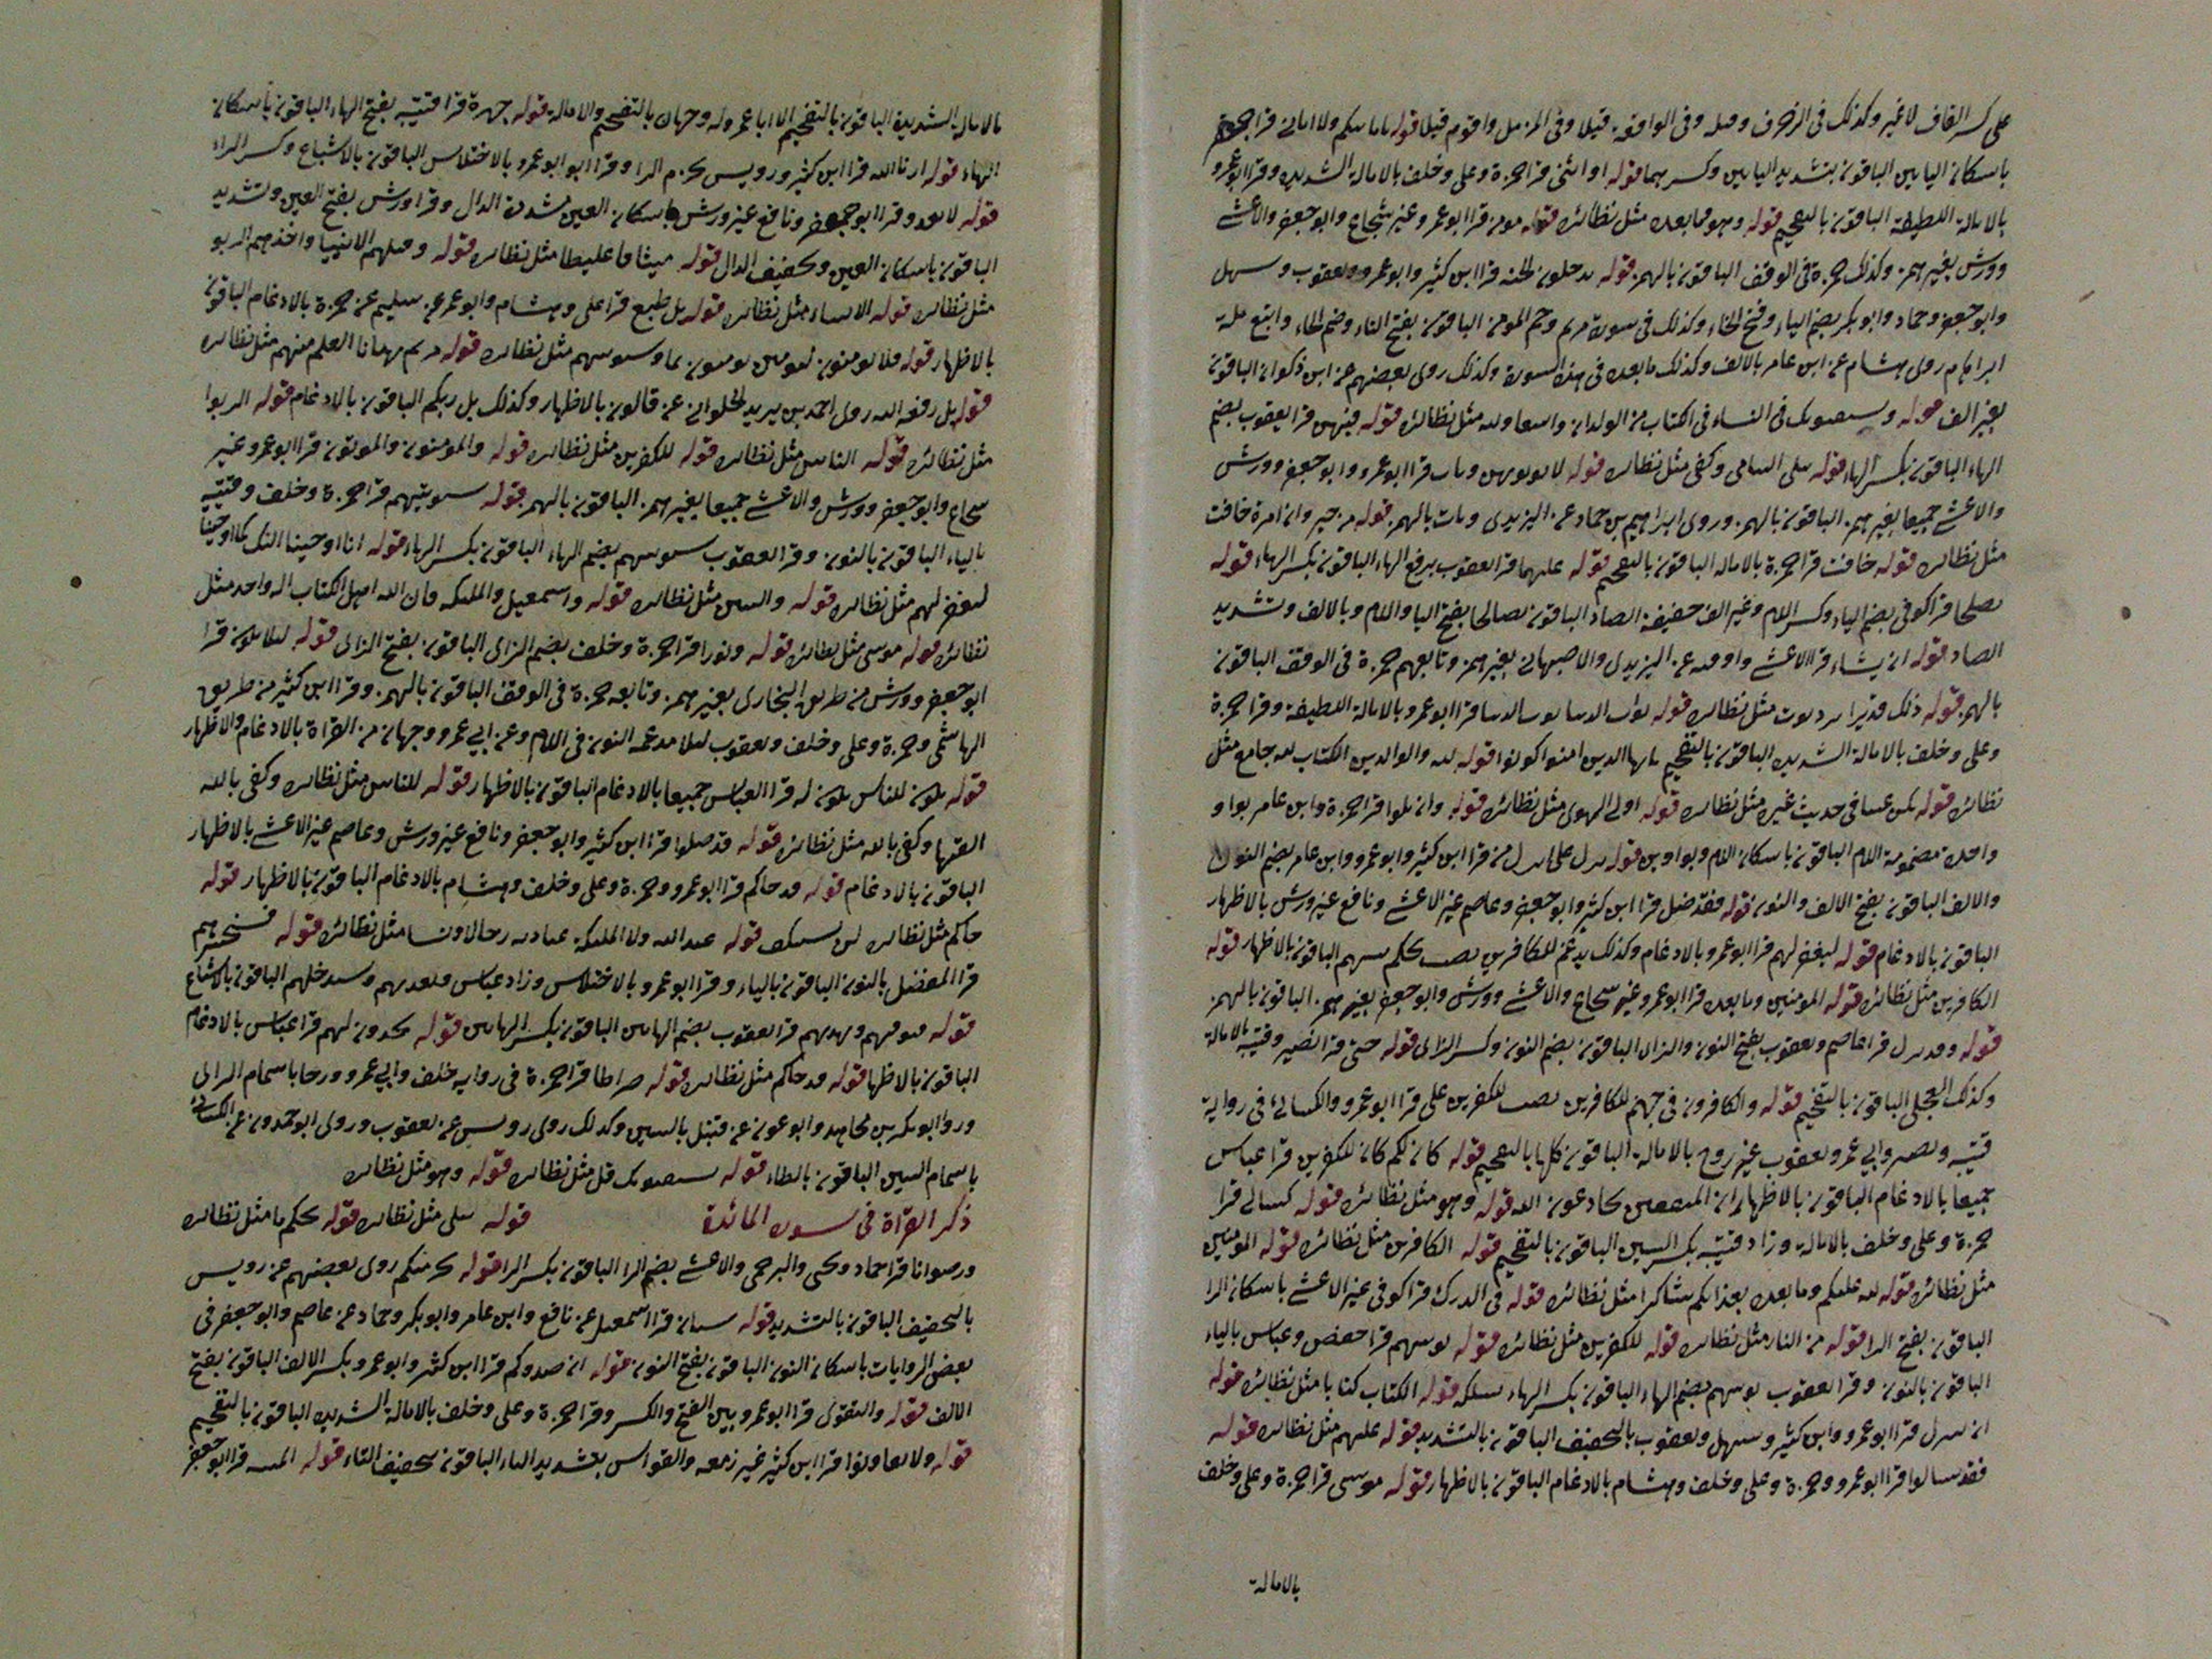 على كسر القاف لا غير وكذلك في الزخرف وقيله وفي الواقعة قيلا وفي المزمل واقوم قيلا قوله بامانيكم ولا اماني قرا ابو جعفر
باسكان اليايين الباقون بتشديد اليايين وكسرهما قوله او انثى قرا حمزة وعلى وخلف بالامالة الشديدة وقرا ابو عمرو
بالامالة اللطيفة الباقون بالتفخيم قوله وهو وما بعده مثل نظائره قوله مومن قرا ابو عمرو غير شجاع وابو جعفر والاعشى
وورش بغير همز وكذلك حمزة في الوقف الباقون بالهمز قوله يدخلون الجنة قرا ابن كثير وابو عمرو ويعقوب وسهل
وابو جعفر وحماد وابو بكر بضم الياء وفتح الخاء وكذلك في سورة مريم وحم المومن الباقون بفتح الياء وضم الخاء واتبع ملة
ابراهام روى هشام عن ابن عامر بالالف وكذلك ما بعده في هذه السورة وكذلك روى بعضهم عن ابن ذكوان الباقون
بغير الف قوله ويستفتونك في النساء في الكتاب من الولدان واسعا ولله مثل نظائره قوله فيهن قرا يعقوب بضم
الهاء الباقون بكسر الهاء قوله يتلى اليتامى وكفى مثل نظائره قوله لا توتونهن ويات قرا ابو عمرو وابو جعفر وورش
والاعشى جميعا بغير همز الباقون بالهمز وروى ابراهيم بن حماد عن اليزيدي ويات بالهمز قوله من خير وان امرة خافت
مثل نظائره قوله خافت قرا حمزة بالامالة الباقون بالتفخيم قوله عليهما قرا يعقوب برفع الهاء الباقون بكسر الهاء قوله
يصلحا قرا كوفي بضم الياء وكسر اللام وغير الف خفيفة الصاد الباقون يصالحا بفتح اليا واللام وبالالف وتشديد
الصاد قوله ان يشاء قرا الاعشى واوقيه عن اليزيدي والاصبهاني بغير همز وتابعهم حمزة في الوقف الباقون
بالهمز قوله ذلك قديرا يريد ثواب مثل نظائره قوله ثواب الدنيا ثواب الدنيا قرا ابو عمرو بالامالة اللطيفة وقرا حمزة
وعلى وخلف بالامالة الشديدة الباقون بالتفخيم يايها الذين امنوا كونوا قوله لله والوالدين الكتاب لله جامع مثل
نظائره قوله يكن غنيا في حديث غيره مثل نظائره قوله اولى الهوى مثل نظائره قوله وان تلوا قرا حمزة وابن عامر بواو
واحدة مضمومة اللام الباقون باسكان اللام وبواوين قوله نزل على انزل من قرا ابن كثير وابو عمرو وابن عامر بضم النون
والالف الباقون بفتح الالف والنون قوله فقد ضل قرا ابن كثير وابو جعفر وعاصم غير الاعشى ونافع غير ورش بالاظهار
الباقون بالادغام قوله ليغفر لهم قرا ابو عمرو بالادغام وكذلك يدغم للكافرين نصيب يحكم بينهم الباقون بالاظهار قوله
الكافرين مثل نظائره قوله المومنين وما بعده قرا ابو عمرو غير شجاع والاعشى وورش وابو جعفر بغير همز الباقون بالهمز
قوله وقد نزل قرا عاصم ويعقوب بفتح النون والزاي الباقون بضم النون وكسر الزاي قوله حتى قرا نصير وقتيبة بالامالة
وكذلك العجلي الباقون بالتفخيم قوله والكافرون في جهنم للكافرين نصيب للكفرين على قرا ابو عمرو والكسائي في رواية
قتيبة ونصير وابي عمر ويعقوب غير روح بالامالة الباقون كلها بالتفخيم قوله كان لكم كان للكفرين قرا عباس
جميعا بالادغام الباقون بالاظهار ان المنفقين يخادعون الله قوله وهو مثل نظائره قوله كسالى قرا
حمزة وعلى وخلف بالامالة وزاد قتيبة بكسر السين الباقون بالتفخيم قوله الكافرين مثل نظائره قوله المومنين
مثل نظائره قوله لله عليكم وما بعده بعذابكم شاكرا مثل نظائره قوله في الدرك قرا كوفي غير الاعشى باسكان الرا
الباقون بفتح الرا قوله من النار مثل نظائره قوله للكفرين مثل نظائره قوله نوتيهم قرا حفص وعباس بالياء
الباقون بالنون وقرا يعقوب نوتيهم بضم الهاء الباقون بكسر الهاء يسئلك قوله الكتاب كتابا مثل نظائره قوله
ان ينزل قرا ابو عمرو وابن كثير وسهل ويعقوب بالتخفيف الباقون بالتشديد قوله عليهم مثل نظائره قوله
فقد سالوا قرا ابو عمرو وحمزة وعلى وخلف وهشام بالادغام الباقون بالاظهار قوله موسى قرا حمزة وعلى وخلف
بالامالة
بالامالة الشديدة الباقون بالتفخيم الا ابا عمرو له وجهان بالتفخيم والامالة قوله جهرة قرا قتيبة بفتح الهاء الباقون باسكان
الهاء قوله ارنا الله قرا ابن كثير ورويس بجزم الرا وقرا ابو عمرو بالاختلاس الباقون بالاشباع وكسر الراء
قوله لا تعدوا قرا ابو جعفر ونافع غير ورش باسكان العين مشددة الدال وقرا ورش بفتح العين وتشديد
الباقون باسكان العين وتخفيف الدال قوله ميثاقا غليظا مثل نظائره قوله وقتلهم الانبيا واخذهم الربو
مثل نظائره قوله الانبياء مثل نظائره قوله بل طبع قرا على وهشام وابو عمر عن سليم عن حمزة بالادغام الباقون
بالاظهار قوله فلا يومنون ليومنن يومنون بما وسنوتيهم مثل نظائره قوله مريم بهتانا العلم منهم مثل نظائره
قوله بل رفعه الله روى احمد بن يزيد الحلواني عن قالون بالاظهار وكذلك بل ربكم الباقون بالادغام قوله الربوا
مثل نظائره قوله الناس مثل نظائره قوله للكفرين مثل نظائره قوله والمومنون والموتون قرا ابو عمرو غير
شجاع وابو جعفر وورش والاعشى جميعا بغير همز الباقون بالهمز قوله سنوتيهم قرا حمزة وخلف وقتيبة
بالياء الباقون بالنون وقرا يعقوب سنوتيهم بضم الهاء الباقون بكسر الهاء قوله انا اوحينا اليك كما اوحينا
ليغفر لهم مثل نظائره قوله والنبين مثل نظائره قوله واسمعيل والملئكة وكان الله اهل الكتاب اله واحد مثل
نظائره قوله موسى مثل نظائره قوله زبورا قرا حمزة وخلف بضم الزاي الباقون بفتح الزاي قوله لئلا يكون قرا
ابو جعفر وورش من طريق البخاري بغير همز وتابعه حمزة في الوقف الباقون بالهمز وقرا ابن كثير من طريق
الهاشمي وحمزة وعلى وخلف ويعقوب لئلا مدغمة النون في اللام وعن ابي عمرو وجهان من القراة بالادغام والاظهار
قوله يكون للناس يكون له قرا العباس جميعا بالادغام الباقون بالاظهار قوله للناس مثل نظائره وكفى بالله
القيها وكفى بالله مثل نظائره قوله قد ضلوا قرا ابن كثير وابو جعفر ونافع غير ورش وعاصم غير الاعشى بالاظهار
الباقون بالادغام قوله قد جاكم قرا ابو عمرو وحمزة وعلى وخلف وهشام بالادغام الباقون بالاظهار قوله
جاكم مثل نظائره لن يستنكف قوله عبدا لله ولا الملئكة عبادته رجالا ونسا مثل نظائره قوله فسنحشرهم
قرا المفضل بالنون الباقون بالياء وقرا ابو عمرو بالاختلاس وزاد عباس ويعذبهم وسيدخلهم الباقون بالاشباع
قوله فيوفيهم ويهديهم قرا يعقوب بضم الهاين الباقون بكسر الهاين قوله يجدون لهم قرا عباس بالادغام
الباقون بالاظها قوله قد جاكم مثل نظائره قوله صراطا قرا حمزة في رواية خلف وابي عمرو ورجا باشمام الزاي
وروا ابو بكر بن مجاهد وابو عون عن قنبل بالسين وكذلك روى رويس عن يعقوب وروى ابو حمدون عن الكسائي
باشمام السين الباقون بالطاء قوله يستفتونك قل مثل نظائره قوله وهو مثل نظائره
ذكر القراة في سورة المائدة قوله يتلى مثل نظائره قوله يحكم ما مثل نظائره
ورضوانا قرا حماد ويحيى والبرجمي والاعشى بضم الرا الباقون بكسر الرا قوله يجرمنكم روى بعضهم عن رويس
بالتخفيف الباقون بالتشديد قوله شنان قرا اسمعيل عن نافع وابن عامر وابو بكر وحماد عن عاصم وابو جعفر في
بعض الروايات باسكان النون الباقون بفتح النون قوله ان صدوكم قرا ابن كثير وابو عمرو بكسر الالف الباقون بفتح
الالف قوله والتقوى قرا ابو عمرو بين الفتح والكسر وقرا حمزة وعلى وخلف بالامالة الشديدة الباقون بالتفخيم
قوله ولا تعاونوا قرا ابن كثير غير زمعه والقواس بتشديد التاء الباقون بتخفيف التاء قوله الميتة قرا ابو جعفر